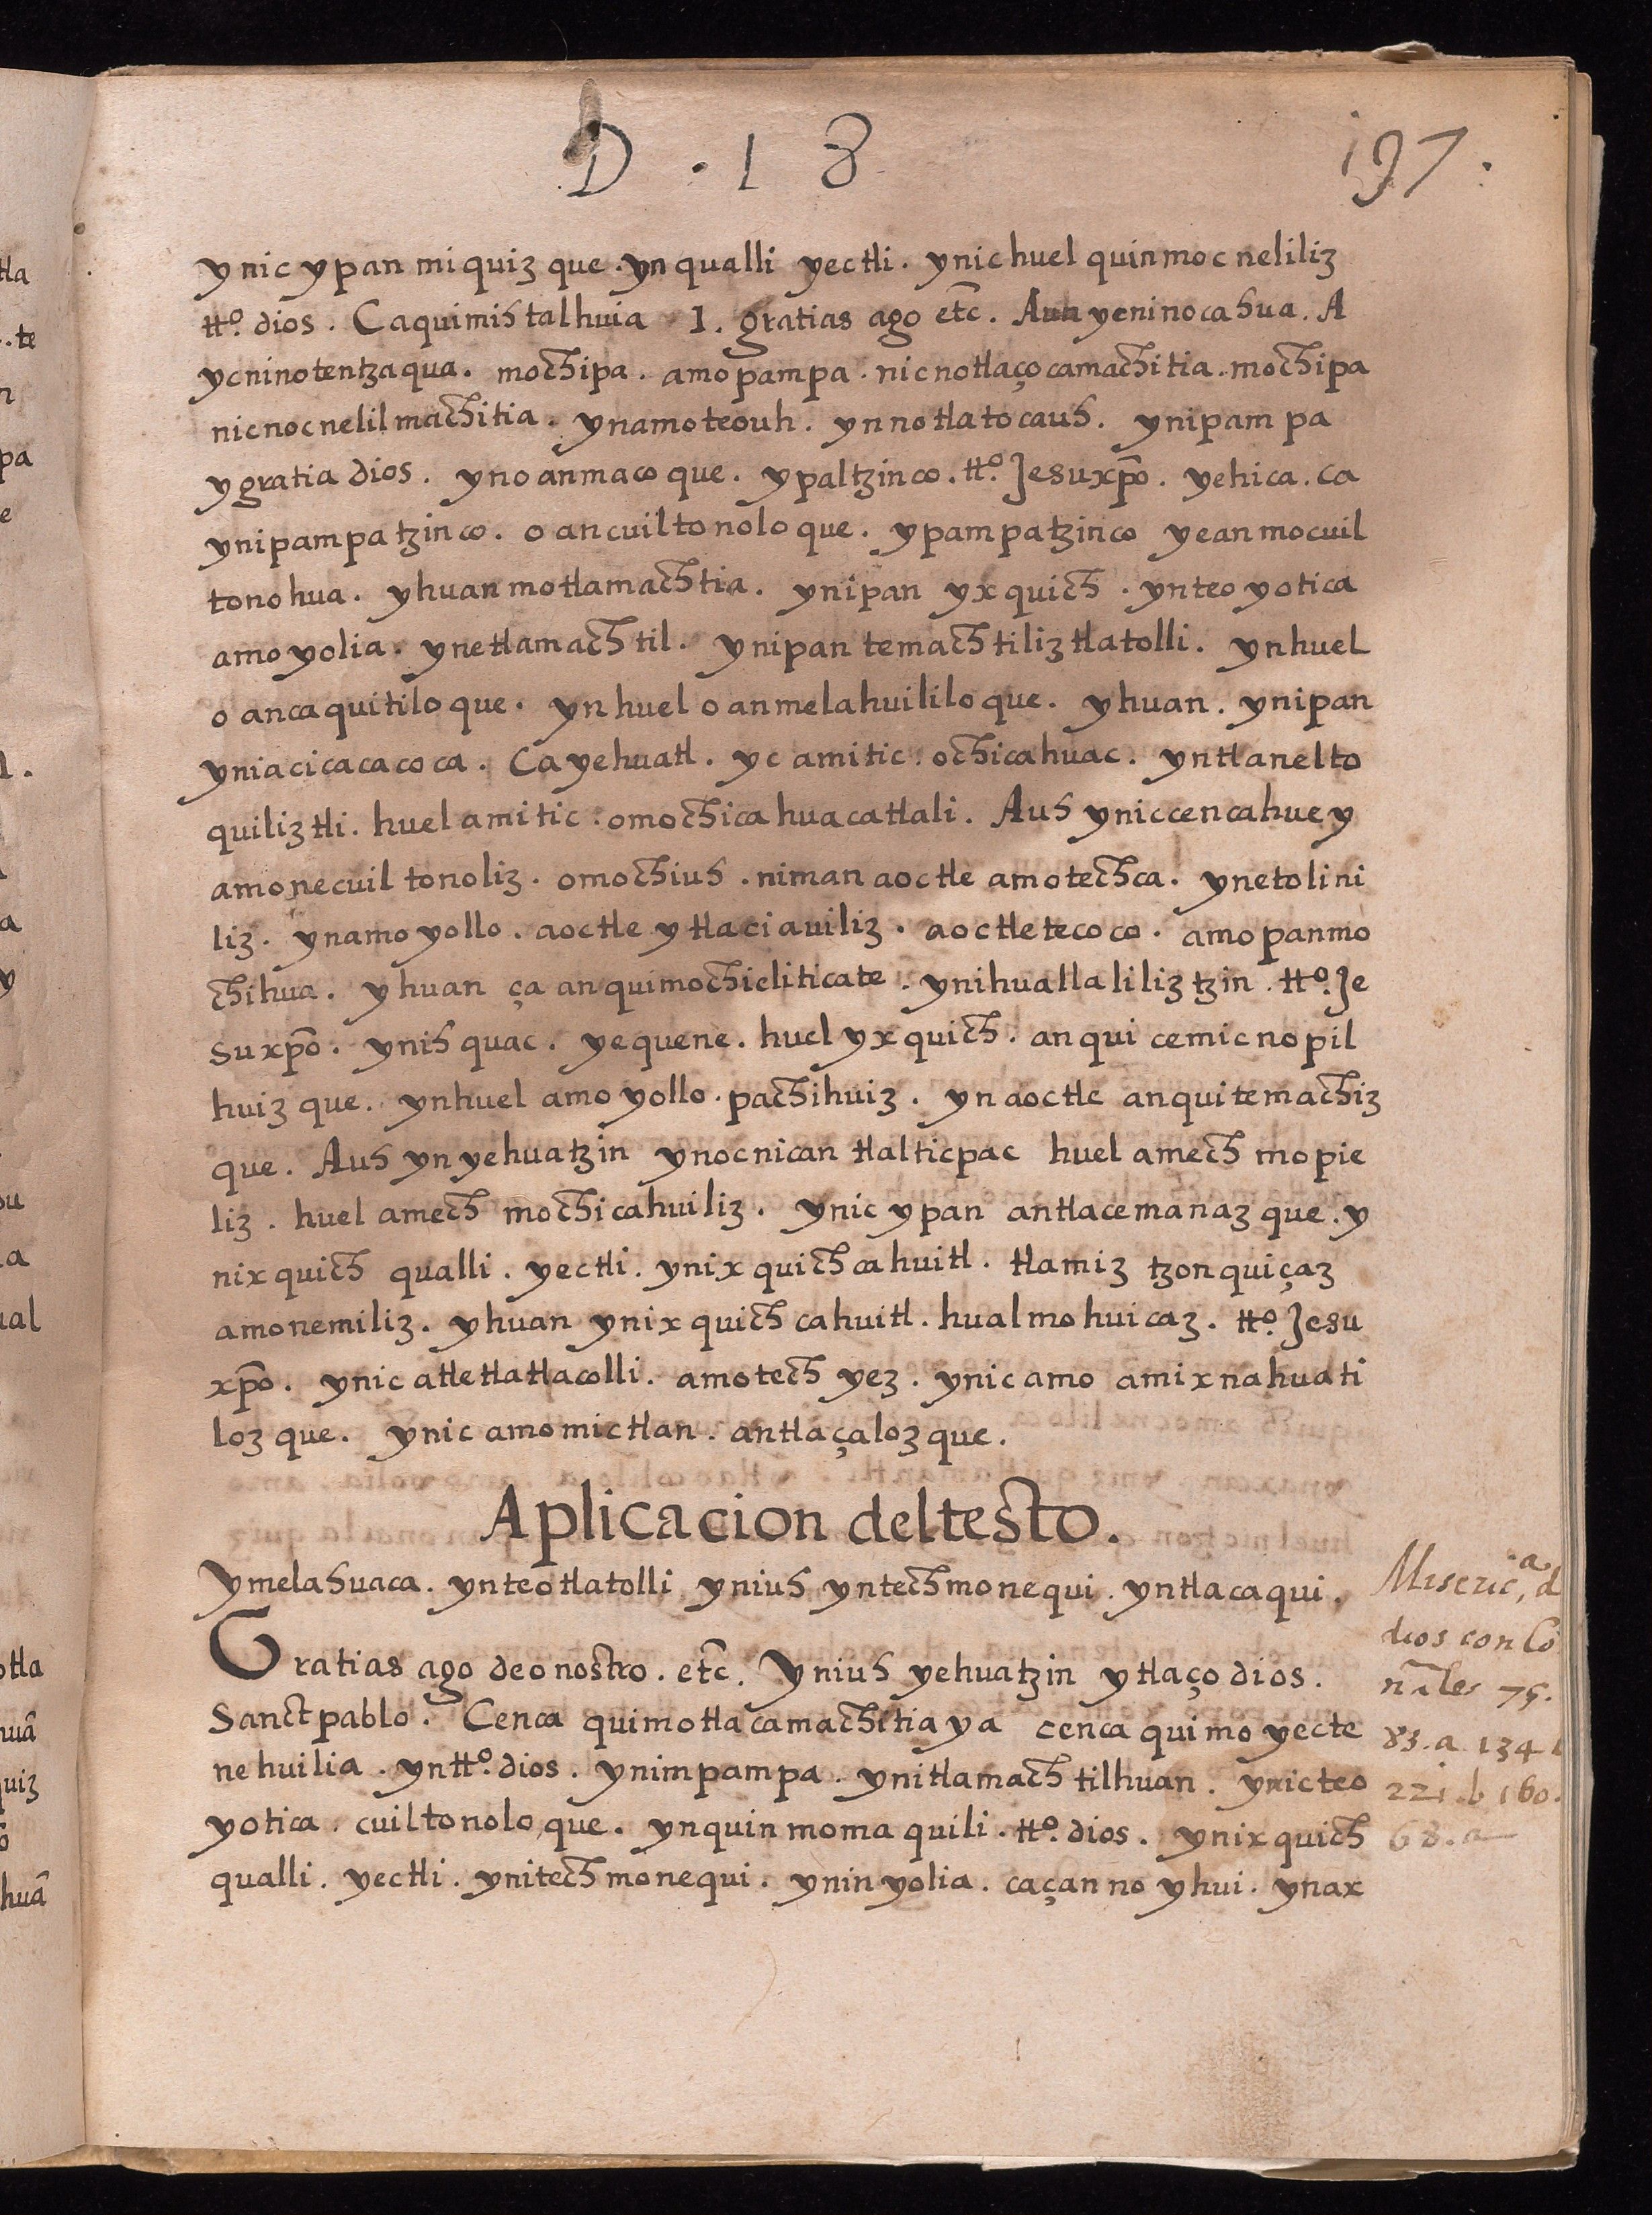 D · 1 8
197.
ynic ypan miquiz que . yn qualli yectli . ynic huel quinmoc neliliz
tt.º dios . Ca quimihtalhuia 1 . gratias ago etc̃ . Auh yc nino cahua . A
yc nino tentzaqua . mochipa . amo pampa . nicnotlaçocamachitia . mochipa
nicnocnelilmachitia . yn amoteouh . yn notlatocauh . yn ipam pa
y gratia dios . yn oanmaco que . ypaltzinco . tt.º Jesuxpõ . yehica . ca
yn ipampatzinco . o ancuiltonolo que . ypampatzinco ye anmocuil
tonohua . yhuan motlamachtia . yn ipan yx quich . yn teoyotica
amoyolia . ynetlamachtil . yn ipan temachtiliztlatolli . yn huel
o ancaquitilo que . yn huel o anmelahuililo que . yhuan . yn ipan
yn iacicacacoca . Ca yehuatl . yc amitic . ochicahuac . yn tlanelto
quiliztli . huel amitic . omochicahuacatlali . Auh ynic cenca huey
amonecuiltonoliz . omochiuh . niman aoctle amotechca . ynetolini
liz . yn amoyollo . aoctle ytlaciauiliz . aoctle tecoco . amopanmo
chihua . yhuan ça anquimochieliticate . yn ihuallaliliztzin . tt.º Je
suxpõ . yn ihquac . yequene . huel yx quich . anqui cemicnopil
huiz que . yn huel amoyollo . pachihuiz . yn aoctle anquitemachiz
que . Auh yn yehuatzin yn oc nican tlalticpac huel amech mopie
liz . huel amech mochicahuiliz . ynic ypan antlacemanaz que . y
nixquich qualli . yectli . yn ixquich cahuitl . tlamiz tzonquiçaz
amonemiliz . yhuan yn ixquich cahuitl . hualmohuicaz . tt.º Jesu
xpõ . ynic atle tlatlacolli . amotech yez . ynic amo amixnahuati
loz que . ynic amo mictlan . antlaçaloz que .
Aplicacion del testo .
Ymelahuaca . yn teotlatolli yniuh yntech monequi . yn tlacaqui .
Gratias ago deo nostro . etc̃ . Yniuh yehuatzin ytlaço dios .
Sanct pablo . Cenca quimotlacamachitiaya cenca quimoyecte
nehuilia . yn tt.º dios . yn impampa . yn itlamachtilhuan . ynic teo
yotica . cuiltonolo que . yn quinmomaquili . tt.º dios . yn ixquich
qualli . yectli . yn itech monequi . ynin yolia . ca çan no yhui . yn ax
Miseric.ª d
dios con Co
nãles 75.
83. a 134
221. b 160.
68. a